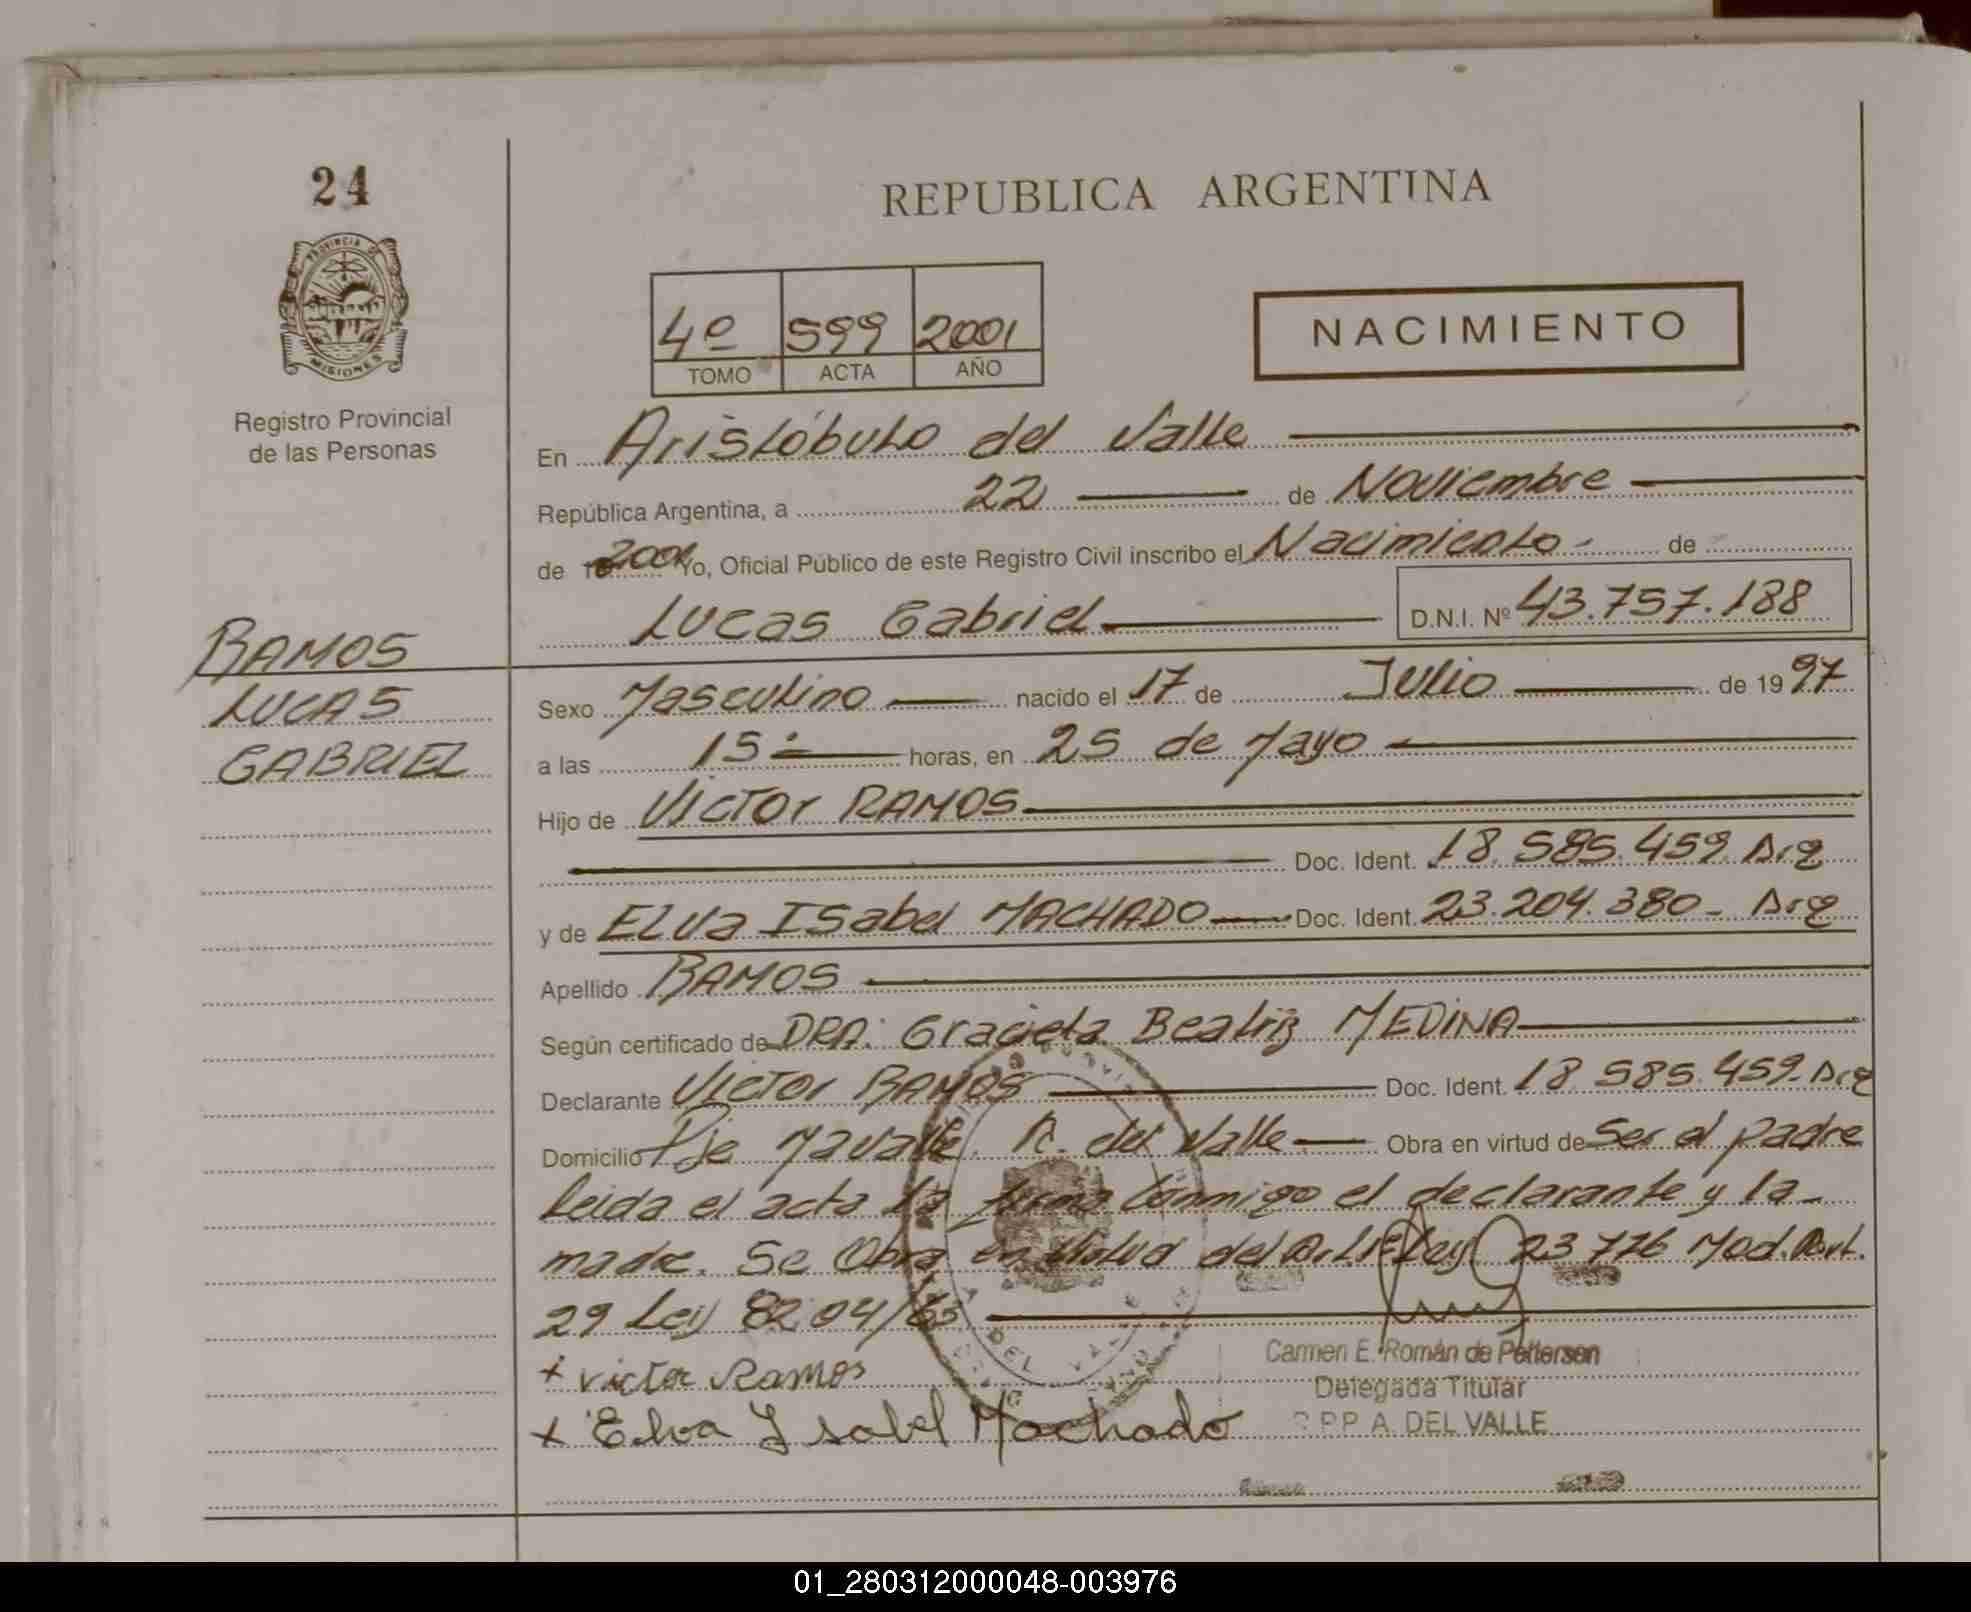 24
REPUBLICA ARGENTINA
PROVINCIA DE
MISIONES
4º 599 2001
TOMO ACTA AÑO
NACIMIENTO
Registro Provincial
de las Personas
En Aristóbulo del Valle
República Argentina, a 22 de Noviembre
de 2001 Yo, Oficial Público de este Registro Civil inscribo el Nacimiento - de
Lucas Gabriel D.N.I. Nº 43.757.188
RAMOS
LUCAS
GABRIEL
Sexo Masculino nacido el 17 de Julio de 1997
a las 15 horas, en 25 de Mayo
Hijo de Victor RAMOS
Doc. Ident. 18.585.459 Arg
y de ELVa ISabel MACHADO Doc. Ident. 23.204.380 - Arg
Apellido RAMOS
Según certificado de DRA: Graciela Beatriz MEDINA
Declarante Victor RAMOS Doc. Ident. 18.585.459 Arg
Domicilio Pje A. del Valle Obra en virtud de Ser el padre
Leida el acta la firma conmigo el declarante y la
madre. Se Obra en virtud del Art. 1º Ley 23776 Mod. Art.
29 Ley 8204/63
+ Victor Ramos
+ Elva Ysabel Machado
Carmen E. Román de Petterson
Delegada Titular
R.P.P. A. DEL VALLE
DEL VALLE
01_280312000048-003976